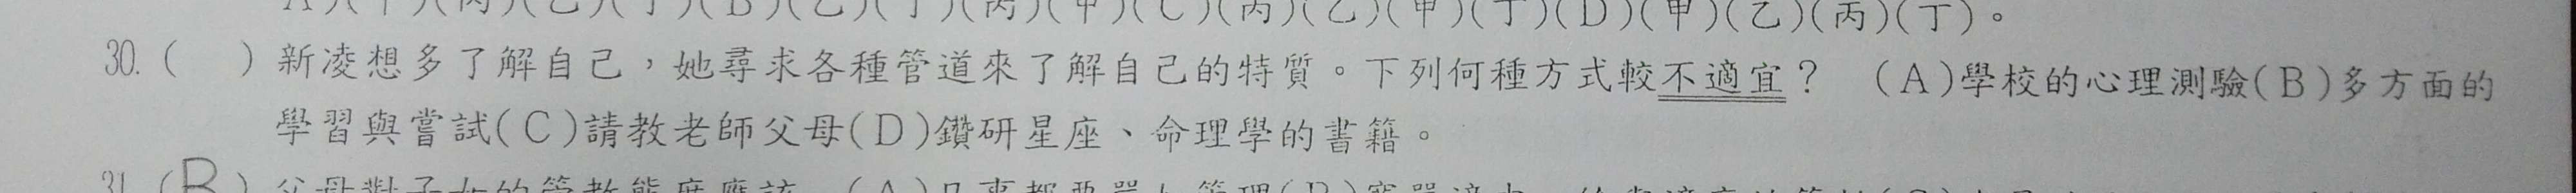 A)(丁)(丙)(乙)(丁)(B)(乙)(丁)(丙)(甲)(C)(丙)(乙)(甲)(丁)(D)(甲)(乙)(丙)(丁)。
30. (　) 新凌想多了解自己，她尋求各種管道來了解自己的特質。下列何種方式較不適宜？ (A)學校的心理測驗(B)多方面的
學習與嘗試(C)請教老師父母(D)鑽研星座、命理學的書籍。
31. (B) 父母對子女的管教態度應該 (A)凡事都要